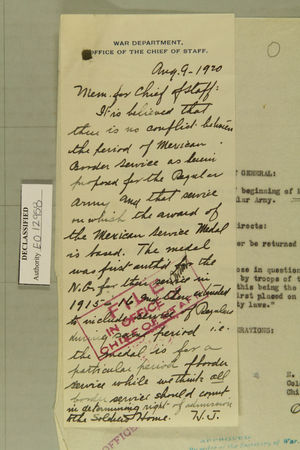 WAR DEPARTMENT,
OFFICE OF THE CHIEF OF STAFF.
Aug. 9 - 1920
Mem. for Chief of Staff:
It is believed that
there is no conflict between
the period of Mexican
Border service as herein
proposed for the Regular
Army and that service
on which the award of
the Mexican Service Medal
is based. The medal
was first auth'd for the
N.G. for their service in
1915-16 and then extended
to include service of Regulars
during period i.e.
the medal is for a
particular period of border
service while we think all
border service should count
in determining right of admission
to the Soldiers' Home. H.J.
FILE
IN OFFICE
CHIEF OF STAFF
DECLASSIFIED
Authority EO 12958
GENERAL:
beginning of
ular Army.
directs:
er be returned
ose in question
by troops of t
this being the
first placed on
ky laws."
ERATIONS:
Col
Chi
OFFICE
APPROVED
Secretary of War